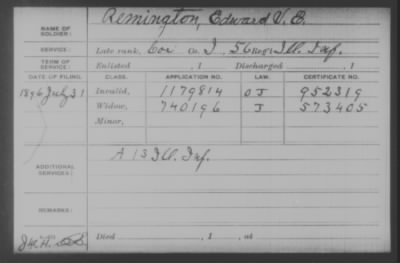 NAME OF SOLDIER: Remington, Edward V. E.
SERVICE: Late rank, Cor Co. I, 56 Reg't Ill. Inf.
TERM OF SERVICE: Enlisted , 1 Discharged , 1
DATE OF FILING. CLASS. APPLICATION NO. LAW. CERTIFICATE NO.
1896 July 31 Invalid, 1179814 O J 952319
Widow, 740196 J 573405
Minor,
ADDITIONAL SERVICES: A 13 Ill. Inf.
REMARKS:
Died , 1 , at